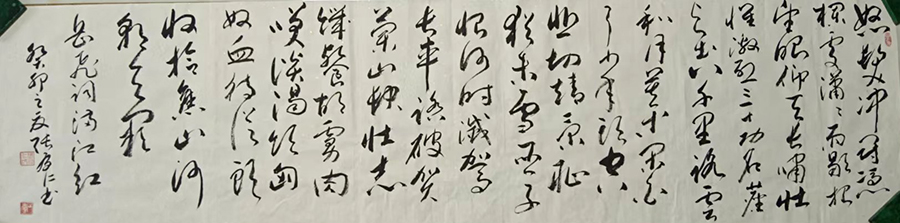 怒髮冲冠憑
欄處瀟瀟雨歇抬
望眼仰天長嘯壯
懷激烈三十功名塵
与土八千里路雲
和月莫等閑白
了少年頭空
悲切靖康恥
猶未雪臣子
恨何時滅駕
長車踏破賀
蘭山缺壯志
饑餐胡虜肉
笑談渴飲匈
奴血待從頭
收拾舊山河
朝天闕
岳飛詞滿江紅
癸卯之夏張仁书